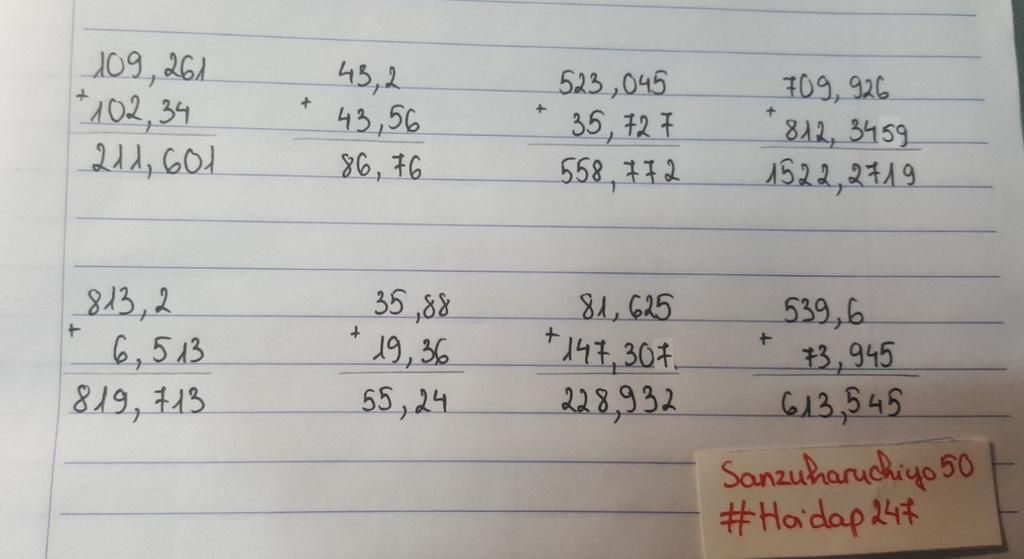 109,261 43,2 523,045 709,926
+ 102,34 + 43,56 + 35,727 + 812,3459
211,601 86,76 558,772 1522,2719
813,2 35,88 81,625 539,6
+ 6,513 + 19,36 + 147,307 + 73,945
819,713 55,24 228,932 613,545
Sanzuharuchiyo50
#Hoidap247